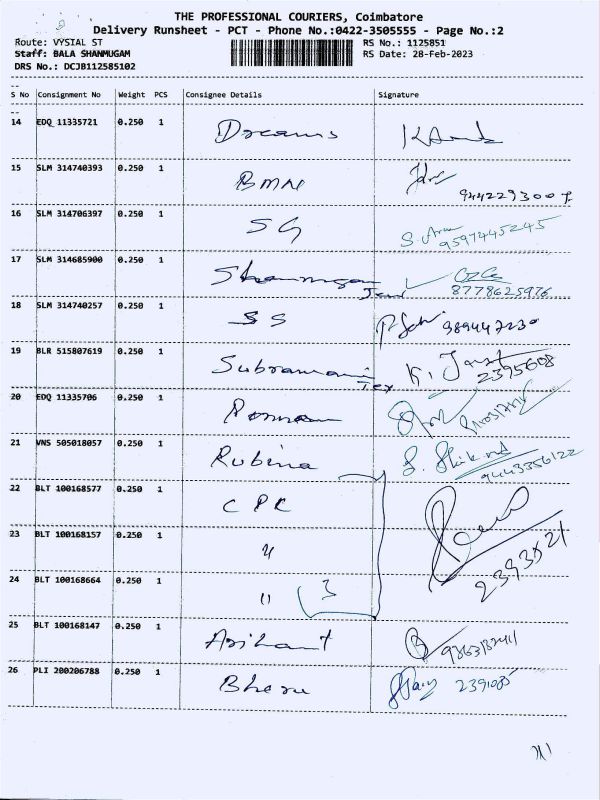 THE PROFESSIONAL COURIERS, Coimbatore
Delivery Runsheet - PCT - Phone No.:0422-3505555 - Page No.:2
Route: VYSIAL ST RS No.: 1125851
Staff: BALA SHANMUGAM RS Date: 28-Feb-2023
DRS No.: DCJB112585102
S No Consignment No Weight PCS Consignee Details Signature
14 EDQ 11335721 0.250 1 Dreams
15 SLM 314740393 0.250 1 BMN
16 SLM 314706397 0.250 1 SG 9597445245
17 SLM 314685900 0.250 1 Shanmugam 8778625976
18 SLM 314740257 0.250 1 SS
19 BLR 515807619 0.250 1 Subramani Tex 2395608
20 EDQ 11335706 0.250 1
21 VNS 505018057 0.250 1 Rubina 9443356122
22 BLT 100168577 0.250 1 CPR
23 BLT 100168157 0.250 1 "
24 BLT 100168664 0.250 1 " 3 2393521
25 BLT 100168147 0.250 1 Arihant
26 PLI 200206788 0.250 1 Bheru